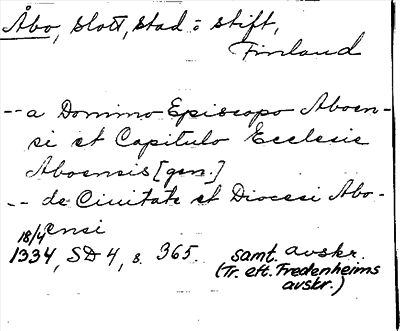 Åbo, slott, stad o stift,
Finland
-- a Domino Episcopo Aboen-
si et Capitulo Ecclesie
Aboensis [gen.]
-- de Ciuitate et Diocesi Abo-
ensi
18/4
1334, SD 4, s. 365. samt. avskr.
(Tr. eft. Fredenheims
avskr.)